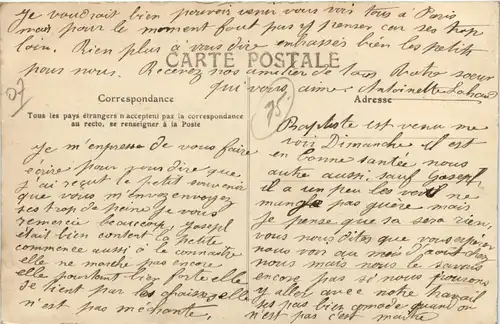 Je voudrait bien pouvoir venir vous voir tous à Paris
mais pour le moment faut pas y penser car ses trop
loin. Rien plus a vous dire embrassés bien les petits
pour nous. Recevez nos amitier de tous Votre soeur
qui vous aime Antoinette
CARTE POSTALE
07
75
Correspondance
Tous les pays étrangers n'acceptent pas la correspondance
au recto, se renseigner à la Poste
Je m'empresse de vous faire
écrire pour vous dire que
j'ai reçut le petit souvenir
que vous m'envoyez
ses trop de peine je vous
remercie beaucoup, Joseph
était bien content la petite
commence aussi à connaitre
elle ne marche pas encore
elle pourtant bien forte elle
se tient par les chaises elle
n'est pas méchante.
Adresse
Baptiste est venu me
voir Dimanche il est
en bonne santée nous
autre aussi sauf Joseph
il a un peu les ne
mange pas guère mais
je pense que sa sera rien,
vous nous dites que vous
nous voir au mois d'août chez
nous mais nous le savais
encore pas si nous pouvons
y aller avec notre travail
ses pas bien comode quand on
n'est pas c'est maitre